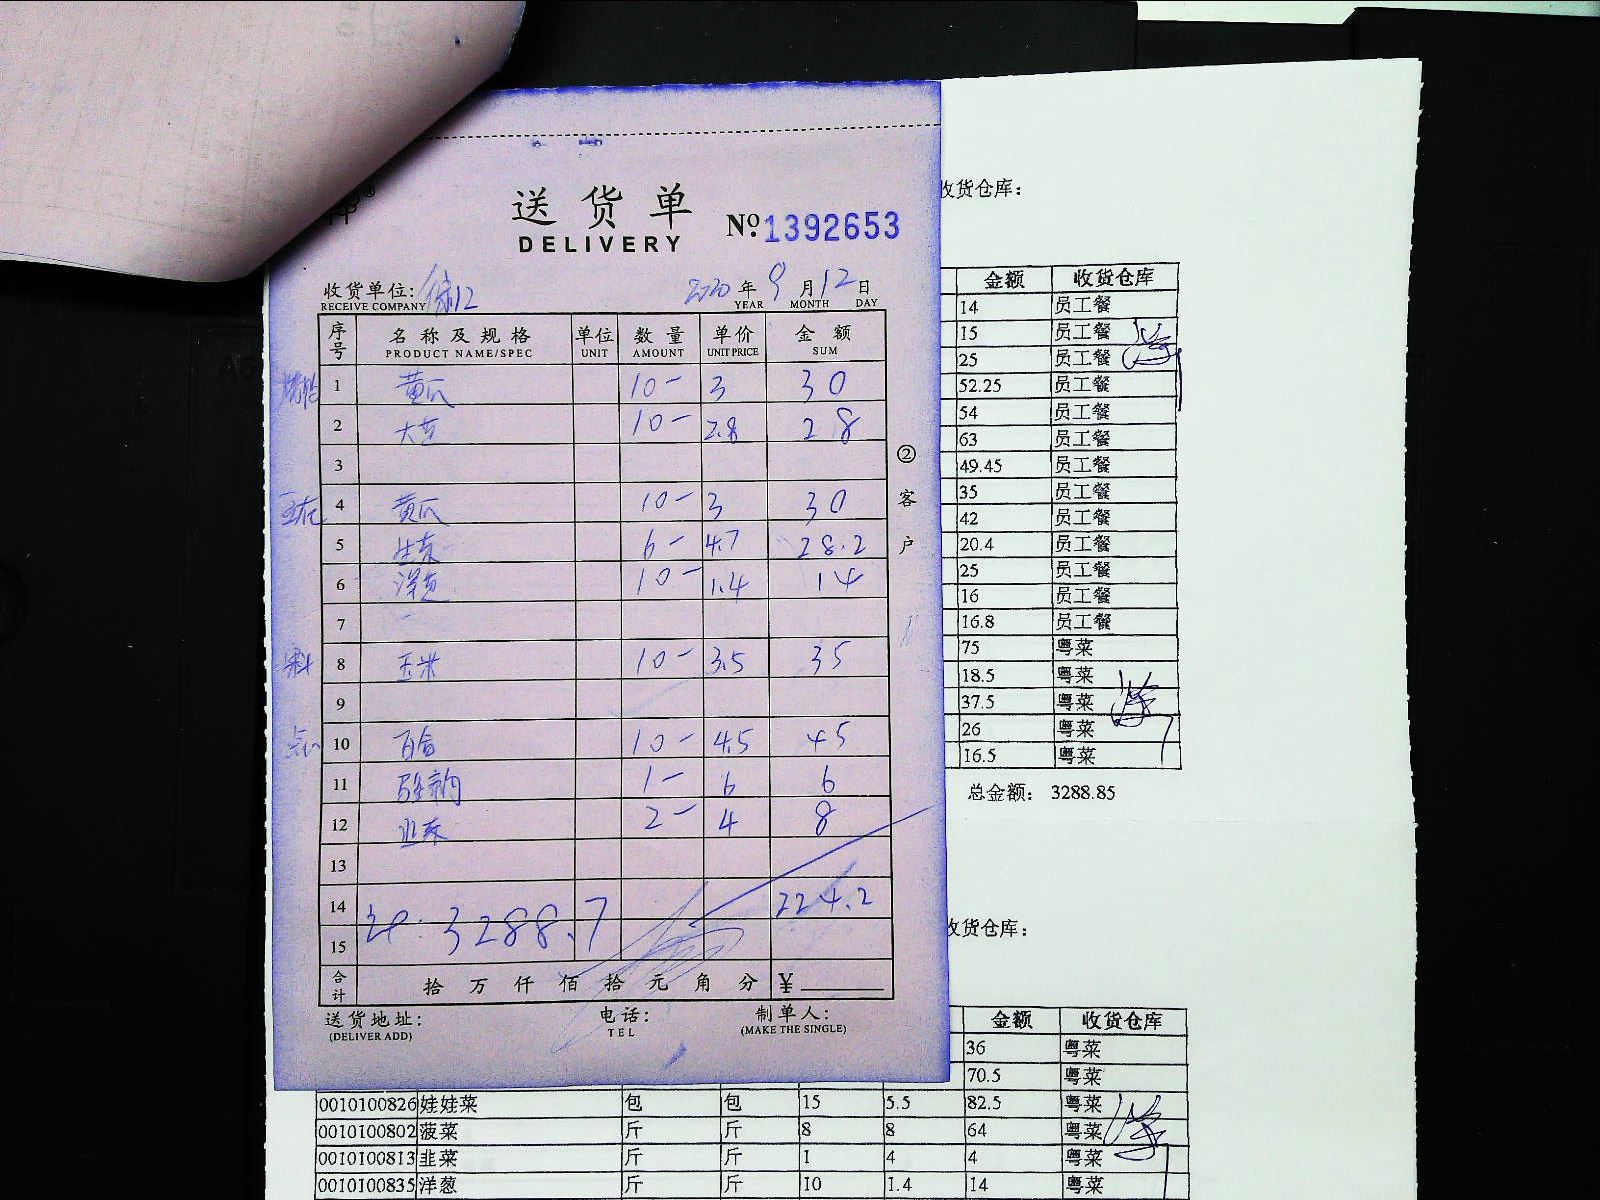 送货单
DELIVERY
No. 1392653
收货单位:
RECEIVE COMPANY
2020 年 9 月 12 日
YEAR MONTH DAY
序号 名称及规格 单位 数量 单价 金额
PRODUCT NAME/SPEC UNIT AMOUNT UNIT PRICE SUM
1 黄瓜 10- 3 30
2 大葱 10- 2.8 28
3
4 黄瓜 10- 3 30
5 生菜 6- 4.7 28.2
6 洋葱 10- 1.4 14
7
8 玉米 10- 3.5 35
9
10 百合 10- 4.5 45
11 1- 6 6
12 韭菜 2- 4 8
13
14 224.2
15 3288.7
合计 拾 万 仟 佰 拾 元 角 分 ¥
送货地址: 电话: 制单人:
(DELIVER ADD) TEL (MAKE THE SINGLE)
②客户
收货仓库:
金额 收货仓库
14 员工餐
15 员工餐
25 员工餐
52.25 员工餐
54 员工餐
63 员工餐
49.45 员工餐
35 员工餐
42 员工餐
20.4 员工餐
25 员工餐
16 员工餐
16.8 员工餐
75 粤菜
18.5 粤菜
37.5 粤菜
26 粤菜
16.5 粤菜
总金额: 3288.85
收货仓库:
金额 收货仓库
36 粤菜
70.5 粤菜
0010100826 娃娃菜 包 包 15 5.5 82.5 粤菜
0010100802 菠菜 斤 斤 8 8 64 粤菜
0010100813 韭菜 斤 斤 1 4 4 粤菜
0010100835 洋葱 斤 斤 10 1.4 14 粤菜